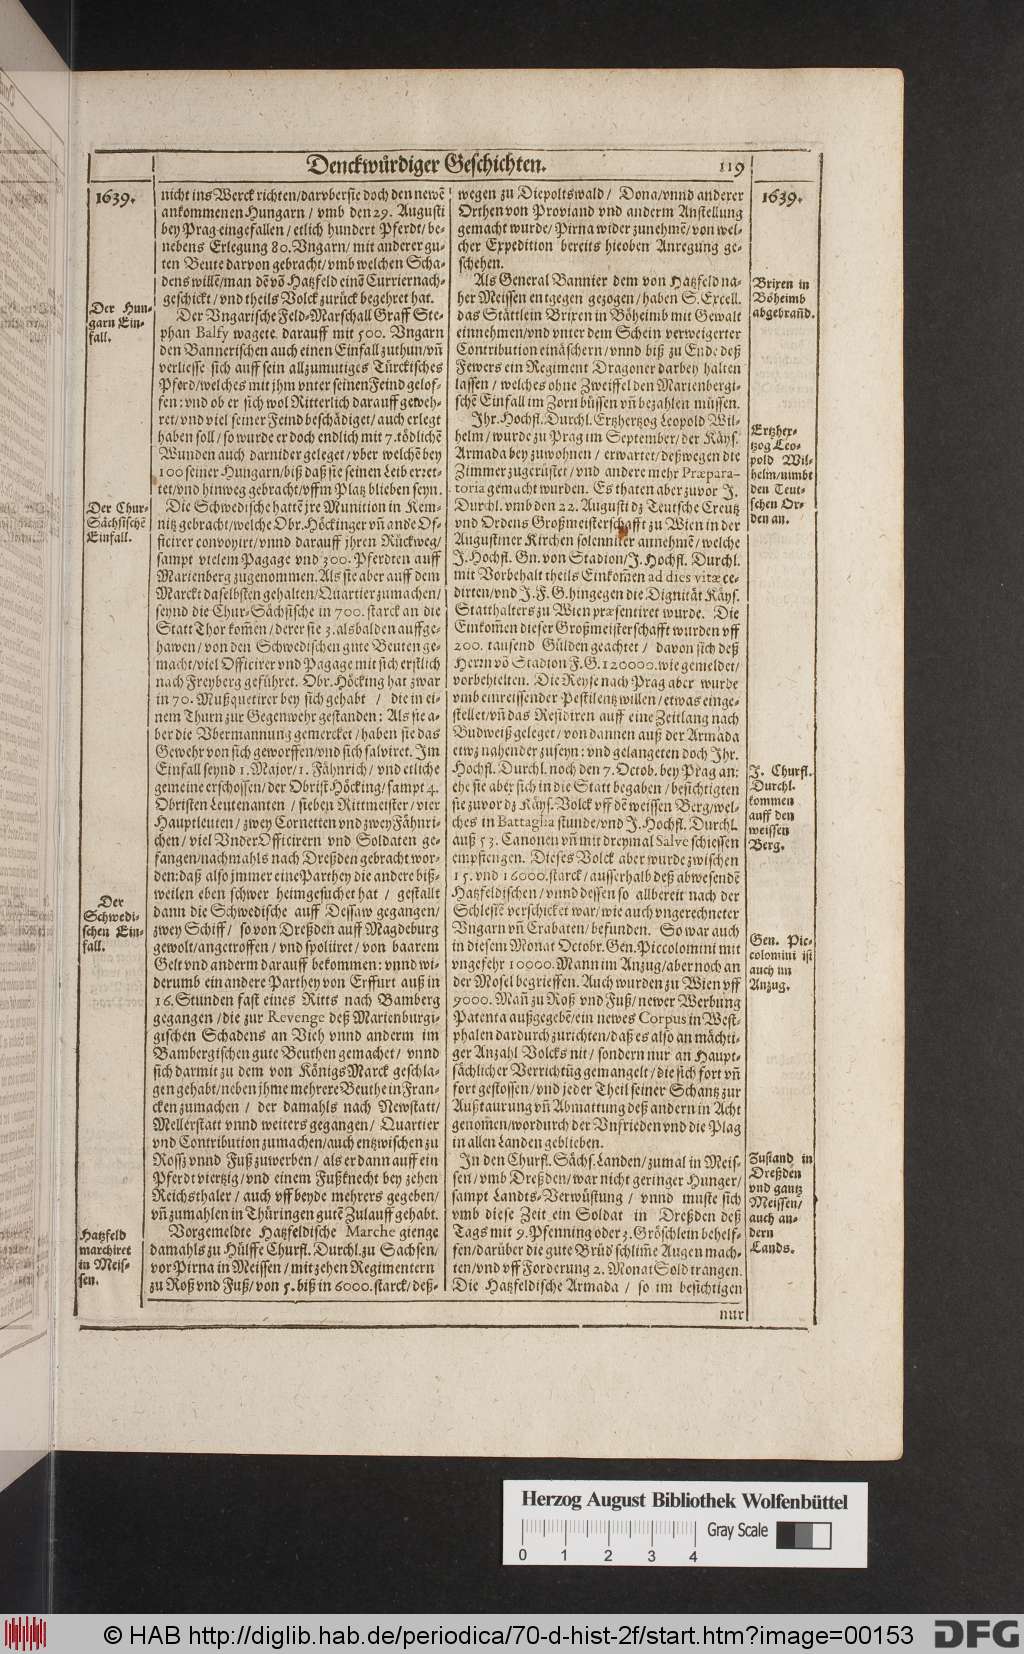 Denckwürdiger Geschichten.
119
1639.
nicht ins Werck richten/darvber sie doch den newē
ankommenen Hungarn / vmb den 29. Augusti
bey Prag eingefallen / etlich hundert Pferdt / be-
nebens Erlegung 80. Vngarn / mit anderer gu-
ten Beute darvon gebracht/vmb welchen Scha-
dens willē/man dē vō Hatzfeld einē Currier nach-
geschickt / vnd theils Volck zurück begehret hat.
Der Hun-
garn Ein-
fall.
Der Vngarische Feld-Marschall Graff Ste-
phan Balfy wagete darauff mit 500. Vngarn
den Bannerischen auch einen Einfall zuthun/vñ
verliesse sich auff sein allzumutiges Türckisches
Pferd/welches mit jhm vnter seinen Feind geloff-
fen: vnd ob er sich wol Ritterlich darauff geweh-
ret/vnd viel seiner Feind beschädiget/ auch erlegt
haben soll / so wurde er doch endlich mit 7. tödlichē
Wunden auch darnider geleget / vber welchem bey
100 seiner Hungarn/biß daß sie seinen Leib erret-
tet/vnd hinweg gebracht/vffm Platz blieben seyn.
Der Chur-
Sächsischē
Einfall.
Die Schwedische hattē jre Munition in Kem-
nitz gebracht/welche Obr. Höckinger vñ andē Of-
ficirer convoyirt/ vnnd darauff jhren Rückweg/
sampt vielem Pagage vnd 300. Pferdten auff
Marienberg zugenommen. Als sie aber auff dem
Marckt daselbsten gehalten/Quartier zumachen/
seynd die Chur-Sächsische in 700. starck an die
Statt Thor kom̃en / derer sie 3. alsbalden auffge-
hawen / von den Schwedischen gute Beuten ge-
macht/viel Officirer vnd Pagage mit sich erstlich
nach Freyberg geführet. Obr. Höcking hat zwar
in 70. Mußquetirer bey sich gehabt / die in ei-
nem Thurn zur Gegenwehr gestanden: Als sie a-
ber die Vbermannung gemercket / haben sie das
Gewehr von sich geworffen/vnd sich salviret. Im
Einfall seynd 1. Major/ 1. Fähnrich / vnd etliche
gemeine erschossen/ der Obrist Höcking/ sampt 4.
Obristen Leutenanten / sieben Rittmeister / vier
Hauptleuten / zwey Cornetten vnd zwey Fähnri-
chen / viel VnderOfficirern vnd Soldaten ge-
fangen/nachmahls nach Dreßden gebracht wor-
den: daß also jmmer eine Parthey die andere biß-
weilen eben schwer heimgesuchet hat / gestallt
Der
Schwedi-
schen Ein-
fall.
dann die Schwedische auff Dessaw gegangen/
zwey Schiff / so von Dreßden auff Magdeburg
gewolt/angetroffen / vnd spoliiret / von baarem
Gelt vnd anderm darauff bekommen: vnnd wi-
derumb ein andere Parthey von Erffurt auß in
16. Stunden fast eines Ritts nach Bamberg
gegangen / die zur Revenge deß Marienburgi-
gischen Schadens an Vieh vnnd anderm im
Bambergischen gute Beuthen gemachet/ vnnd
sich darmit zu dem von KönigsMarck geschla-
gen gehabt/neben jhme mehrere Beuthe in Fran-
cken zumachen / der damahls nach Newstatt/
Mellerstatt vnnd weiters gegangen / Quartier
vnd Contribution zumachen/auch entzwischen zu
Rossz vnnd Fuß zuwerben / als er dann auff ein
Pferdt viertzig/vnd einem Fußknecht bey zehen
Reichsthaler / auch vff beyde mehrers gegeben/
vñ zumahlen in Thüringen gutē Zulauff gehabt.
Hatzfeld
marchiret
in Meis-
sen.
Vorgemeldte Hatzfeldische Marche gienge
damahls zu Hülffe Churfl. Durchl. zu Sachsen/
vor Pirna in Meissen / mit zehen Regimentern
zu Roß vnd Fuß/ von 5. biß in 6000. starck/ deß-
wegen zu Diepoltswald / Dona/vnnd anderer
Orthen von Proviand vnd anderm Anstellung
gemacht wurde/ Pirna wider zunehmē/ von wel-
cher Expedition bereits hieoben Anregung ge-
schehen.
1639.
Als General Bannier dem von Hatzfeld na-
her Meissen entgegen gezogen / haben S. Excell.
das Stättlein Brixen in Böheimb mit Gewalt
einnehmen/vnd vnter dem Schein verweigerter
Contribution einäschern / vnnd biß zu Ende deß
Fewers ein Regiment Dragoner darbey halten
lassen / welches ohne Zweiffel den Marienbergi-
schē Einfall im Zorn büssen vñ bezahlen müssen.
Brixen in
Böheimb
abgebrañd.
Jhr. Hochfl. Durchl. Ertzhertzog Leopold Wil-
helm / wurde zu Prag im September / der Käys.
Armada bey zuwohnen / erwartet / deßwegen die
Zimmer zugerüstet / vnd andere mehr Præpara-
toria gemacht wurden. Es thaten aber zuvor J.
Durchl. vmb den 22. Augusti dz Teutsche Creutz
vnd Ordens Großmeisterschafft zu Wien in der
Augustiner Kirchen solenniter annehmē/ welche
J. Hochfl. Gn. von Stadion/J. Hochfl. Durchl.
mit Vorbehalt theils Einkom̃en ad dies vitæ ce-
dirten/vnd J. F. G. hingegen die Dignität Käys.
Statthalters zu Wien præsentiret wurde. Die
Einkom̃en dieser Großmeisterschafft wurden vff
200. tausend Gülden geachtet / davon sich deß
Herrn vō Stadion F. G. 120000. wie gemeldet/
vorbehielten. Die Reyse nach Prag aber wurde
vmb einreissender Pestilentz willen / etwas einge-
stellet/ vñ das Residiren auff eine Zeitlang nach
Budweiß geleget / von dannen auß der Armada
etwz nahender zuseyn: vnd gelangeten doch Jhr.
Hochfl. Durchl. noch den 7. Octob. bey Prag an:
ehe sie aber sich in die Statt begaben / besichtigten
sie zuvor dz Käys. Volck vff dē weissen Berg/wel-
ches in Battaglia stunde/vnd J. Hochfl. Durchl.
auß 53. Canonen vñ mit dreymal Salve schiessen
empfiengen. Dieses Volck aber wurde zwischen
15. vnd 16000. starck/ ausserhalb deß abwesendē
Hatzfeldischen / vnnd dessen so allbereit nach der
Schlesiē verschicket war/ wie auch vngerechneter
Vngarn vñ Crabaten/ befunden. So war auch
in diesem Monat Octobr. Gen. Piccolomini mit
vngefehr 10000. Mann im Anzug/aber noch an
der Mosel begrieffen. Auch wurden zu Wien vff
9000. Mañ zu Roß vnd Fuß/ newer Werbung
Patenta außgegebē/ ein newes Corpus in West-
phalen dardurch zurichten/daß es also an mächti-
ger Anzahl Volcks nit / sondern nur an Haupt-
sächlicher Verrichtūg gemangelt / die sich fort vñ
fort gestossen / vnd jeder Theil seiner Schantz zur
Außtaurung vñ Abmattung deß andern in Acht
genom̃en/wordurch der Vnfrieden vnd die Plag
in allen Landen geblieben.
Ertzher-
tzog Leo-
pold Wil-
helm/nimbt
den Teut-
schen Or-
den an.
J. Churfl.
Durchl.
kommen
auff den
weissen
Berg.
Gen. Pic-
colomini ist
auch im
Anzug.
In den Churfl. Sächs. Landen/zumal in Meis-
sen / vmb Dreßden / war nicht geringer Hunger/
sampt Landts-Verwüstung / vnnd muste sich
vmb diese Zeit ein Soldat in Dreßden deß
Tags mit 9. Pfenning oder 3. Gröschlein behelf-
fen/darüber die gute Brüd̃ schlim̃e Augen mach-
ten/vnd vff Forderung 2. Monat Sold trangen.
Die Hatzfeldische Armada / so im besichtigen
Zustand in
Dreßden
vnd gantz
Meissen/
auch an-
dern
Lands.
nur
Herzog August Bibliothek Wolfenbüttel
0 1 2 3 4
Gray Scale
© HAB http://diglib.hab.de/periodica/70-d-hist-2f/start.htm?image=00153
DFG